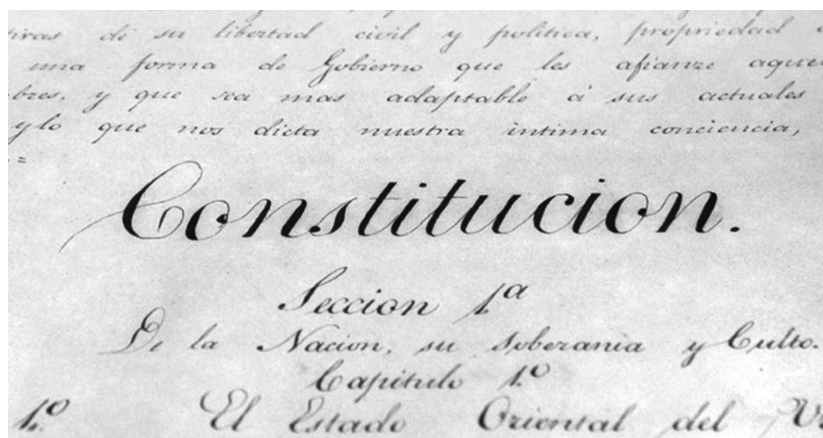 de su libertad civil y politica, propriedad
una forma de Gobierno que les afianze
y que sea mas adaptable á sus actuales
ylo que nos dicta nuestra intima conciencia,
=
Constitucion.
Seccion 1.ª
De la Nacion, su soberania y Culto.
Capitulo 1.º
1.º El Estado Oriental del